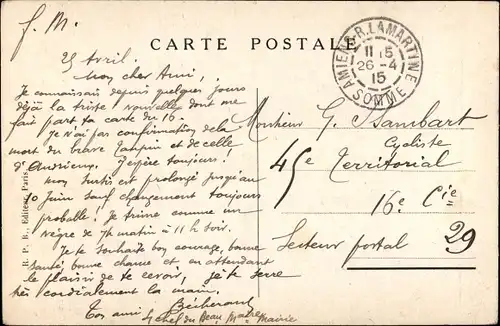 F. M.
CARTE POSTALE
AMIENS R. LAMARTINE
11 15
26 - 4
15
SOMME
25 Avril.
Mon cher Ami,
Je connaissais depuis quelques jours
déjà la triste nouvelle dont me
fait part ta carte du 16.
Je n'ai pas confirmation de la
mort du brave et de celle
d'Andrieux. J'espère toujours!
Mon sursis est prolongé jusqu'au
10 Juin sauf changement toujours
probable! Je trime comme un
nègre de 7h matin à 11 h soir.
Je te souhaite bon courage, bonne
santé, bonne chance et en attendant
le plaisir de te revoir, je te serre
très cordialement la main.
Ton ami
Mairie
Monsieur G. Sambart
Cycliste
45e Territorial
16e Cie
Secteur postal 29
B. P. R., Editeur, Paris.